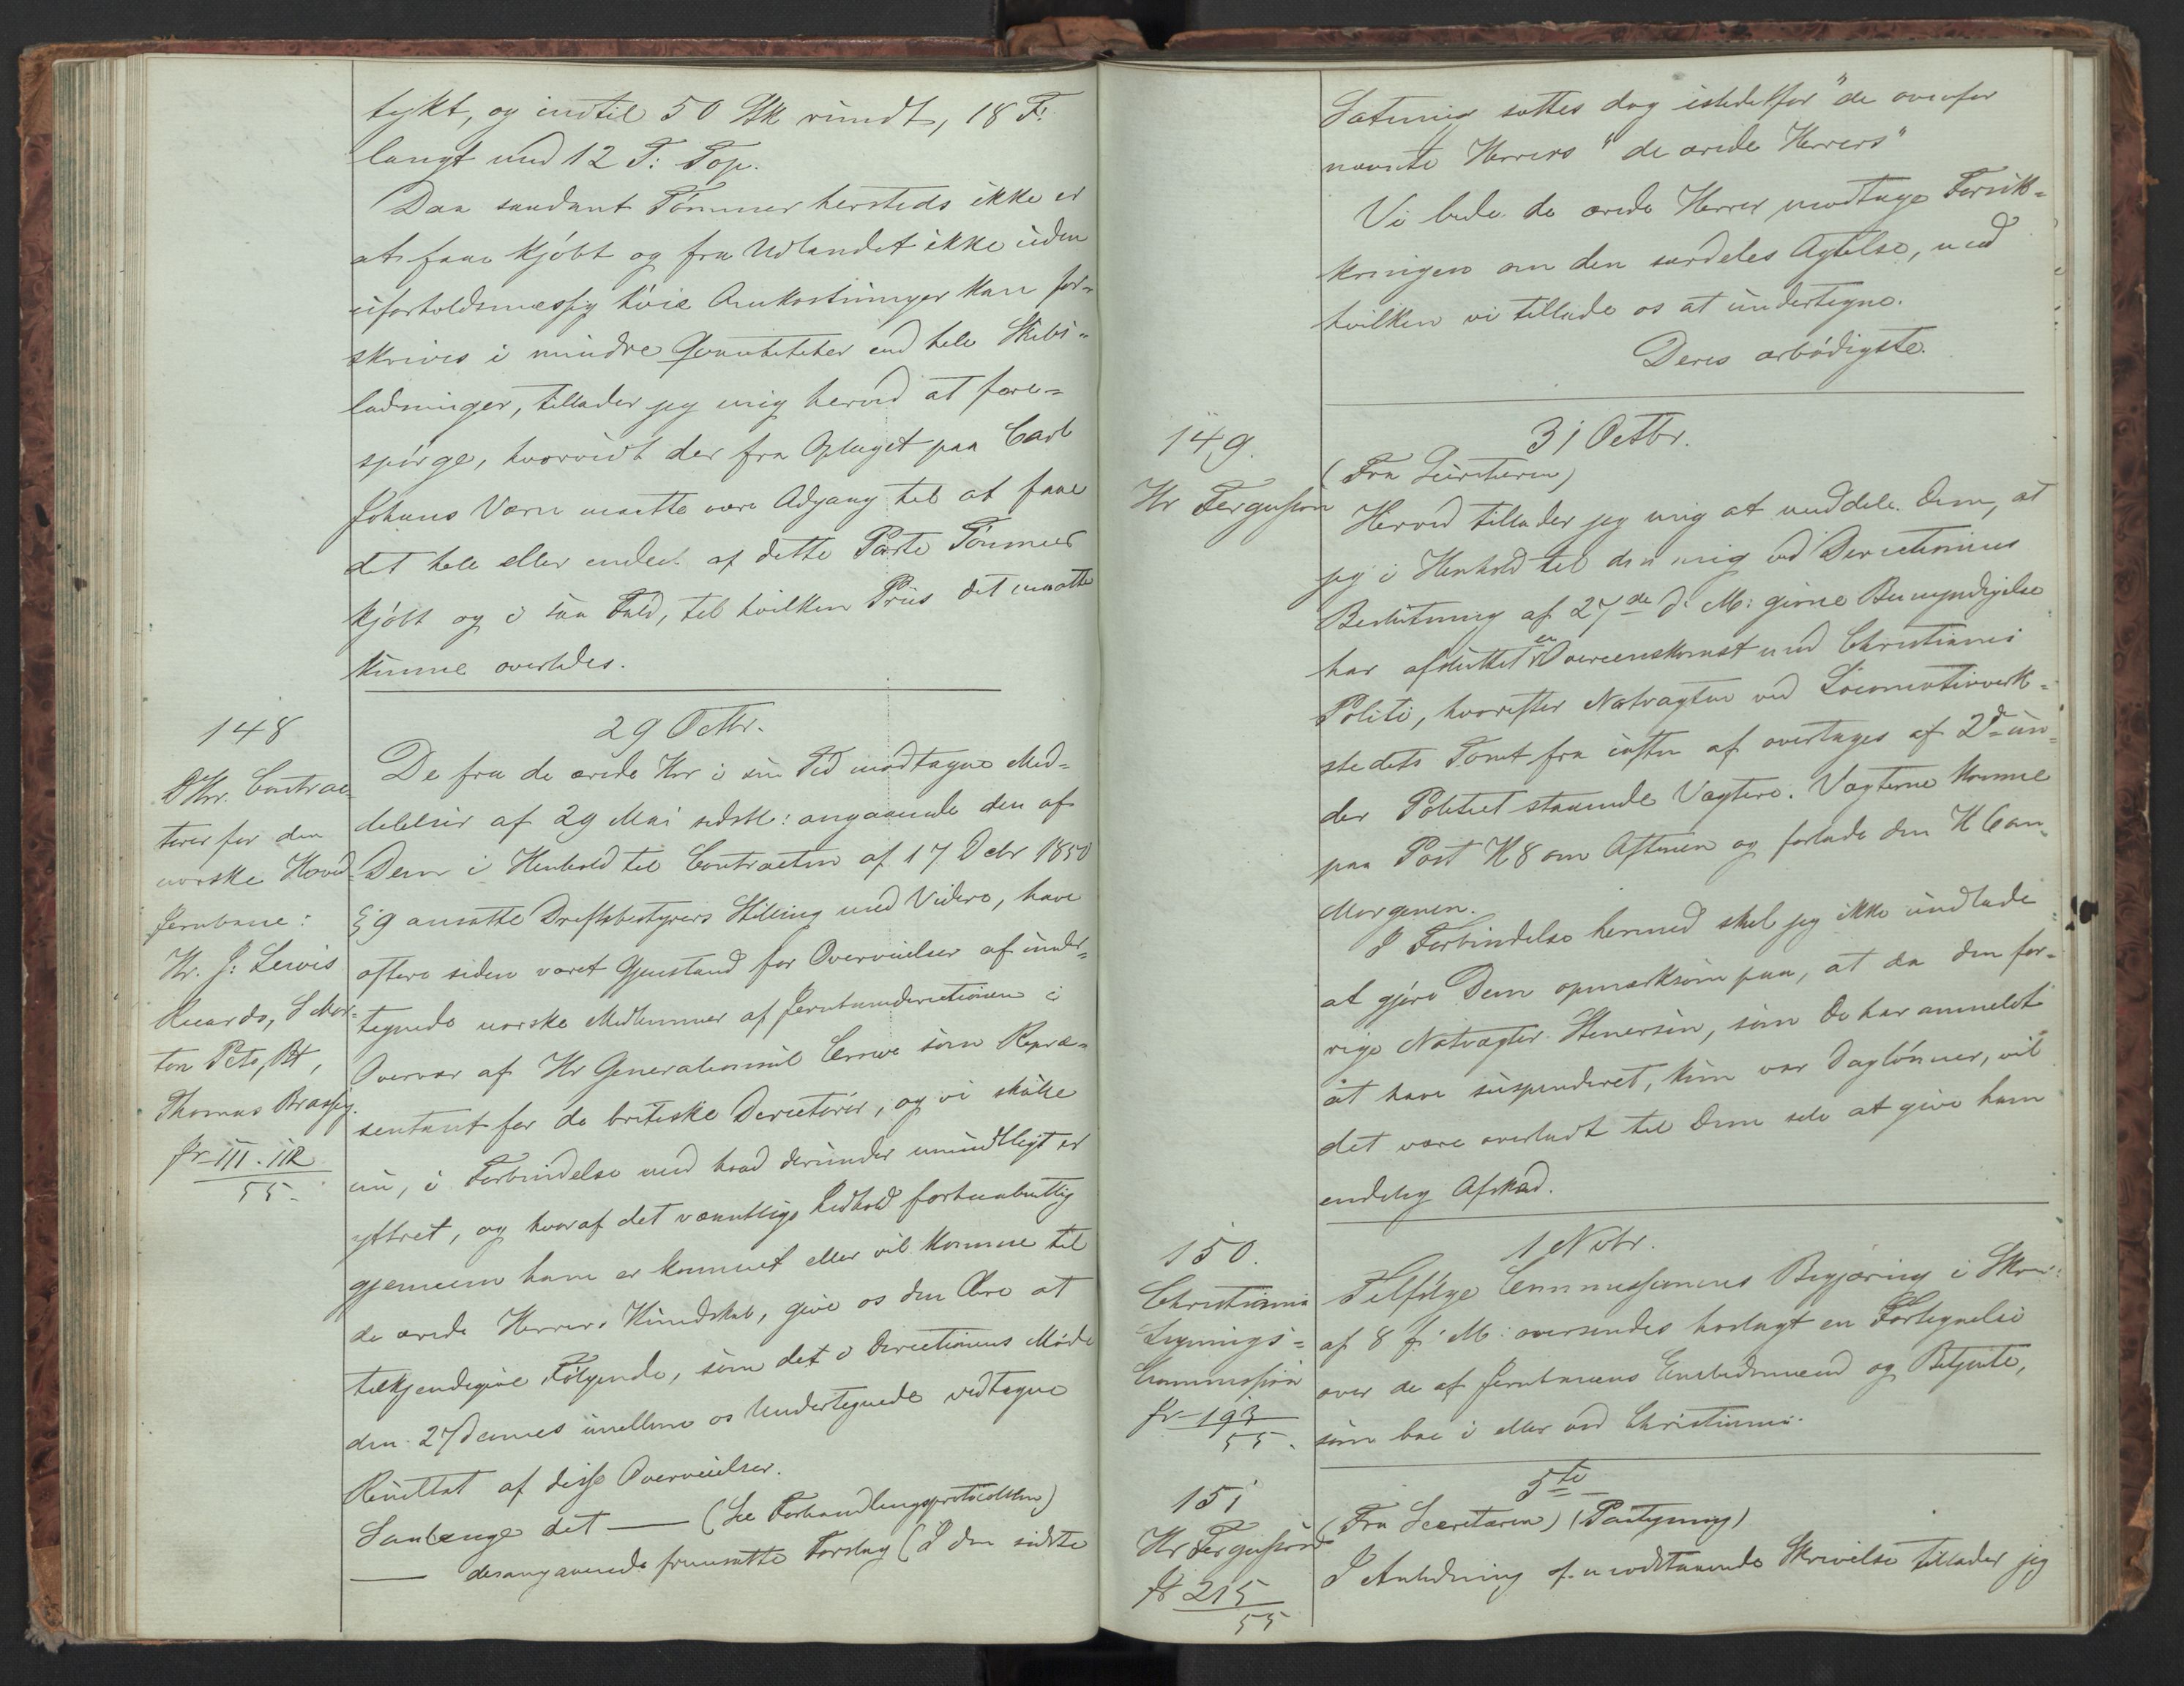 tykt, og indtil 50 Stk rundt, 18 F:
langt med 12 T: Top.
Daa saadant Tömmer hersteds ikke er
at faae kjöbt og fra Udlandet ikke uden
uforholdsmæssig höie Omkostninger kan for-
skrives i mindre Qvantiteter end hele Skibs-
ladninger, tillader jeg mig herved at fore-
spörge, hvorvidt der fra Oplaget paa Carl
Johans Værn maatte være Adgang til at faae
det hele eller endeel af dette Parti Tömmer
kjöbt og i saa Fald, til hvilken Priis det maatte
kunne overlades.
148
29 Octbr.
DHrr. Contrac-
törer for den
norske Hoved-
Jernbane:
Hr. J: Lewis
Ricardo, S Mor-
ton Peto, Bt,
Thomas Brassey.
Jr III. 112
55.
De fra de ærede Hrr i sin Tid modtagne Med-
delelser af 29 Mai sidstl: angaaende den af
Dem i Henhold til Contracten af 17 Decbr 1850
§ 9 ansatte Driftsbestyrers Stilling med Videre, have
oftere siden været Gjenstand for Overveielser af under-
tegnede norske Medlemmer af Jernbanedirectionen i
Overvær af Hr Generalconsul Crowe som Repræ-
sentant for de britiske Directörer, og vi skulle
nu, i Forbindelse med hvad derunder mundtligt er
yttret, og hvoraf det væsentlige Indhold forhaabentlig
gjennem ham er kommet eller vil komme til
de ærede Herrers Kundskab, give os den Ære at
tilkjendegive Fölgende, som det i Directionens Möde
den 27 dennes imellem os Undertegnede vedtagne
Resultat af disse Overveielser.
Saalænge det — (See Forhandlingsprotocollen)
— desangaaende fremsatte Forslag (I den sidste
Sætning sættes dog istedetfor "de ovenfor
nævnte Herrers" "de ærede Herrers"
Vi bede de ærede Herrer modtage Forsik-
kringen om den særdeles Agtelse, med
hvilken vi tillade os at undertegne.
Deres ærbödigste.
149.
31 Octbr.
Hr Fergusson
(Fra Secretæren)
Herved tillader jeg mig at meddele Dem, at
jeg i Henhold til den mig ved Directionens
Beslutning af 27de d: M: givne Bemyndigelse
har afsluttet en Overeenskomst med Christiania
Politi, hvorefter Natvagten ved Locomotivverk-
stedets Tomt fra iaften af overtages af 2de un-
der Politiet staaende Vægtere. Vægterne komme
paa Post Kl 8 om Aftenen og forlade den Kl 6 om
Morgenen.
I Forbindelse hermed skal jeg ikke undlade
at gjöre Dem opmærksom paa, at da den for-
rige Natvægter Stenersen, som De har anmeldt
at have suspenderet, kun var Daglönner, vil
det være overladt til Dem selv at give ham
endelig Afsked.
150.
1 Novbr.
Christiania
Lignings-
Commission
Jr 193
55.
Ifölge Commissionens Begjæring i Skriv:
af 8 f: M: oversendes hoslagt en Fortegnelse
over de af Jernbanens Embedsmænd og Betjente,
som boe i eller ved Christiania.
151
5te
Hr Fergusson
Jr 215
55
(Fra Secretæren) (Paategning)
I Anledning af modstaaende Skrivelse tillader jeg